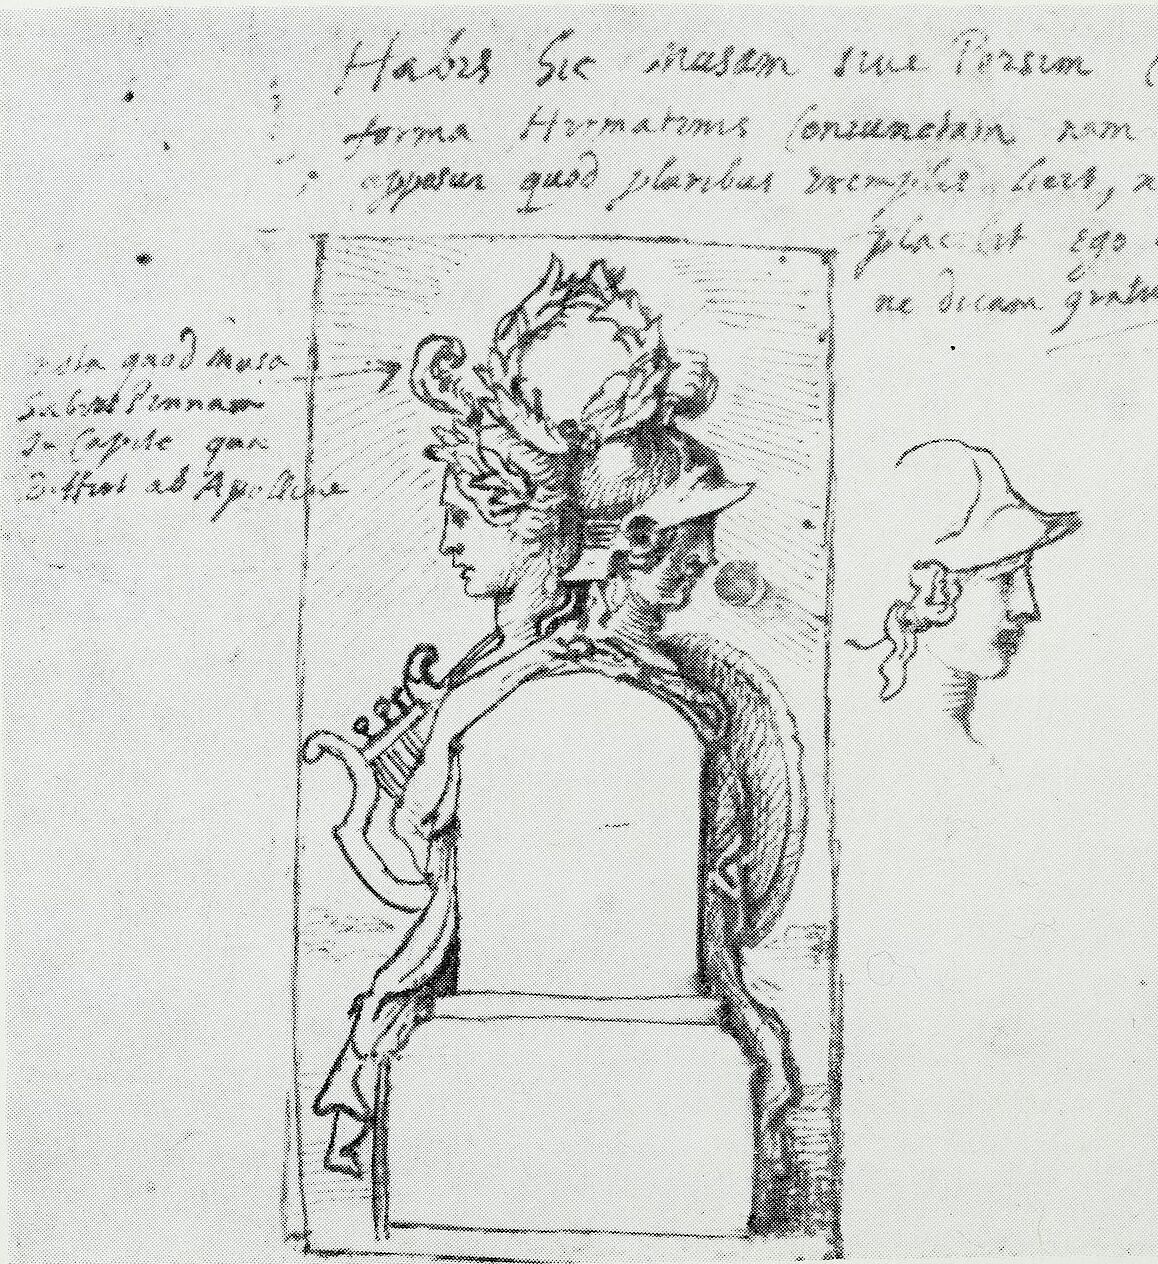 Habes hic Musam sive Poesim
forma Hermatenis Coniunctam nam
apposui quod pluribus exemplis licet, n
placebit Ego
ne dicam gratu
nota quod Musa
habet Pennam
In Capite qua
differt ab Apolline